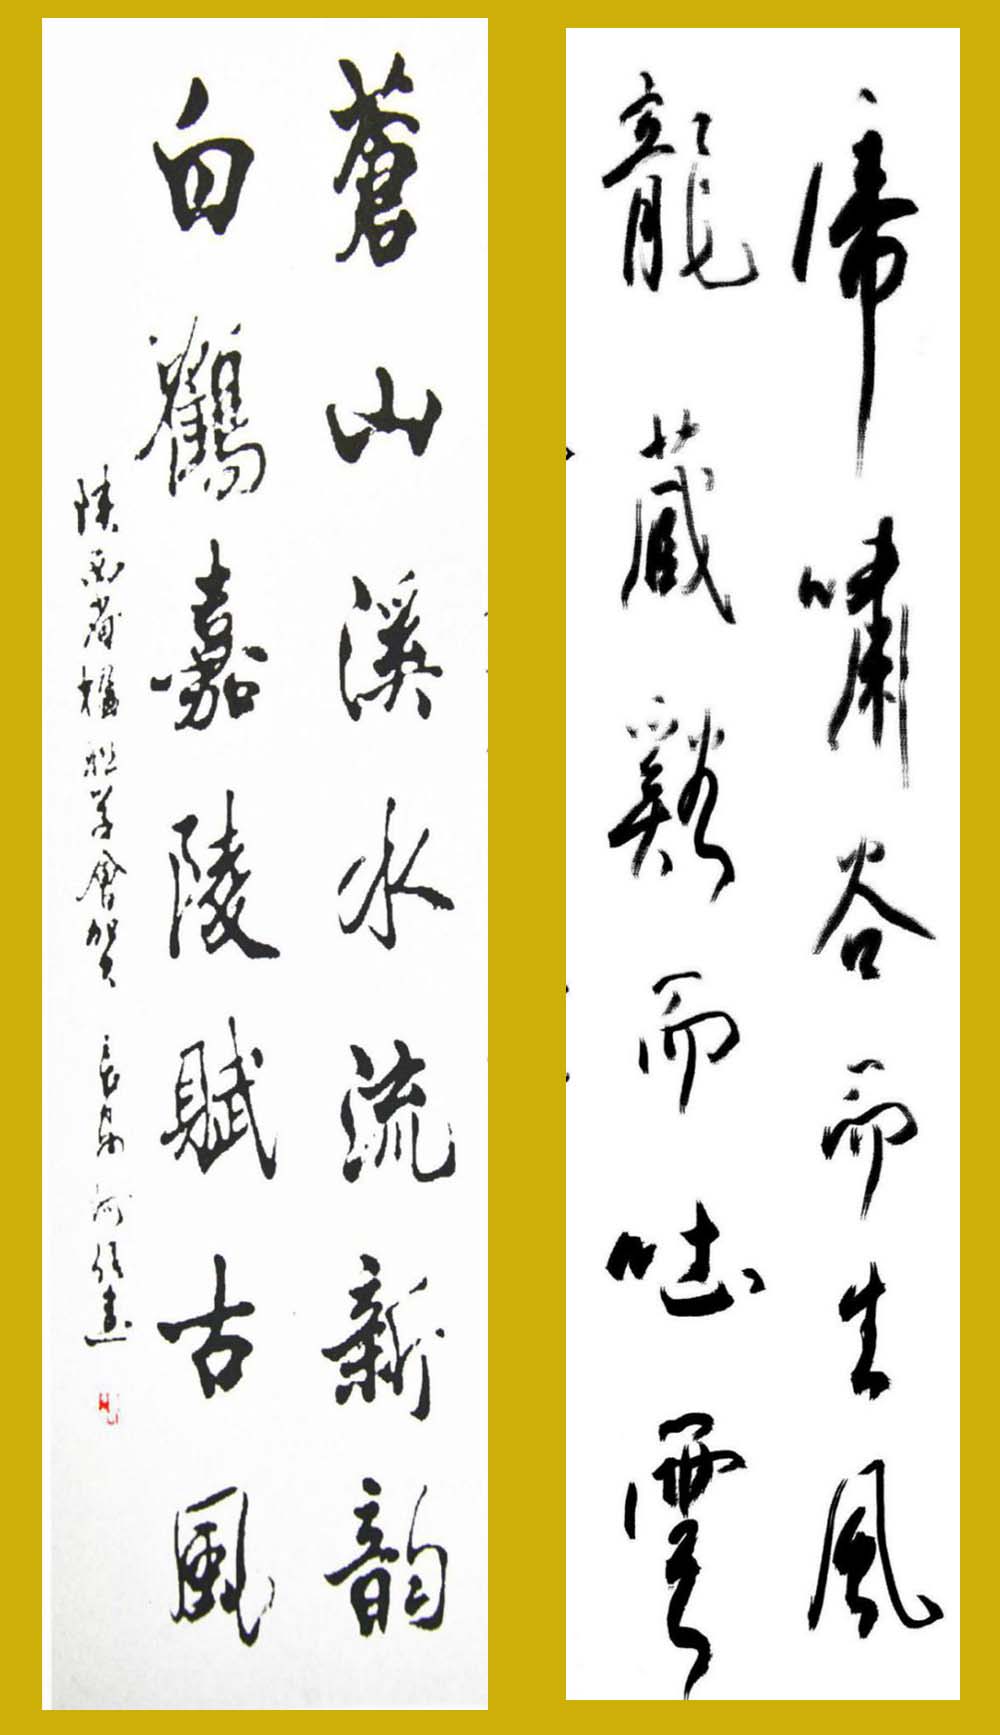 虎嘯谷而生風
龍藏谿而吐雲
蒼山溪水流新韵
白鶴嘉陵賦古風
陝西省楹联学會賀 長安